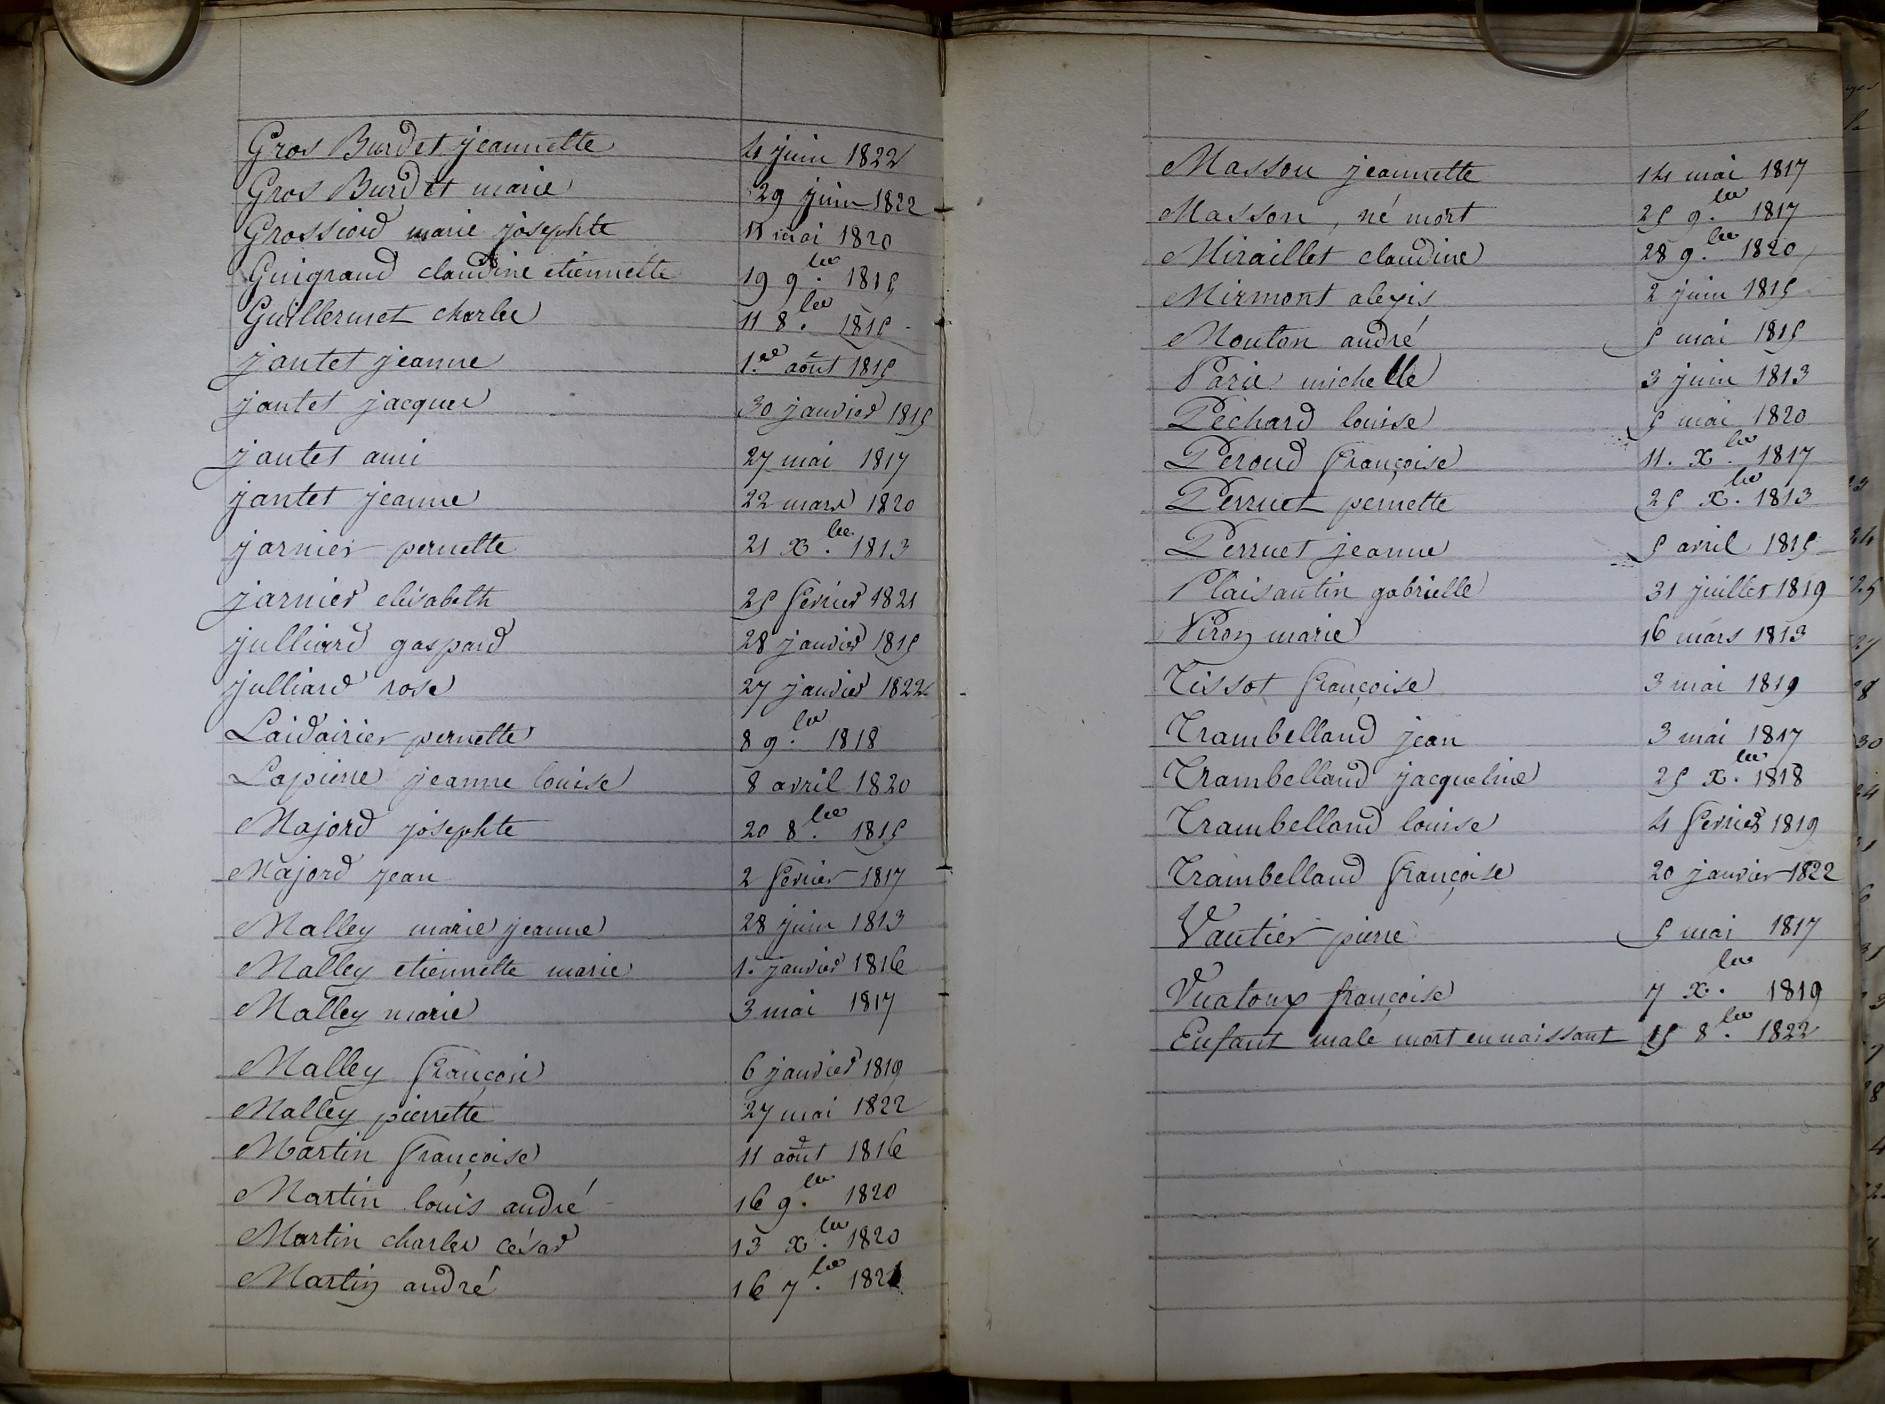 Gros Burdet jeannette 4 juin 1822
Gros Burdet marie 29 juin 1822
Grossiord marie josephte 11 mai 1820
Guigrand claudine etiennette 19 9.bre 1815
Guillermet charles 11 8.bre 1815
jantet jeanne 1.er août 1815
jantet jacques 30 janvier 1815
jantet ami 27 mai 1817
jantet jeanne 22 mars 1820
jarnier pernette 21 x.bre 1813
jarnier elisabeth 25 fevrier 1821
julliard gaspard 28 janvier 1815
julliard rose 27 janvier 1822
Laidairier pernette 8 9.bre 1818
Lapierre jeanne louise 8 avril 1820
Majord josephte 20 8.bre 1815
Majord jean 2 fevrier 1817
Malley marie jeanne 28 juin 1813
Malley etiennette marie 1. janvier 1816
Malley marie 3 mai 1817
Malley françois 6 janvier 1819
Malley pierrette 27 mai 1822
Martin françoise 11 août 1816
Martin louis andré 16 9.bre 1820
Martin charles césar 13 x.bre 1820
Martin andré 16 7.bre 1821
Masson jeannette 14 mai 1817
Masson, né mort 25 9.bre 1817
Miraillet claudine 28 9.bre 1820
Mirmont alexis 2 juin 1815
Mouton andré 5 mai 1815
Paris michelle 3 juin 1813
Pechard louise 5 mai 1820
Peroud françoise 11. x.bre 1817
Perruet pernette 25 x.bre 1813
Perruet jeanne 5 avril 1815
Plaisantin gabrielle 31 juillet 1819
Piron marie 16 mars 1813
Tissot françoise 3 mai 1819
Trambelland jean 3 mai 1817
Trambelland jacqueline 25 x.bre 1818
Trambelland louise 4 fevrier 1819
Trambelland françoise 20 janvier 1822
Vautier pierre 5 mai 1817
Vuatoux françoise 7 x.bre 1819
Enfant male mort en naissant 15 8.bre 1822